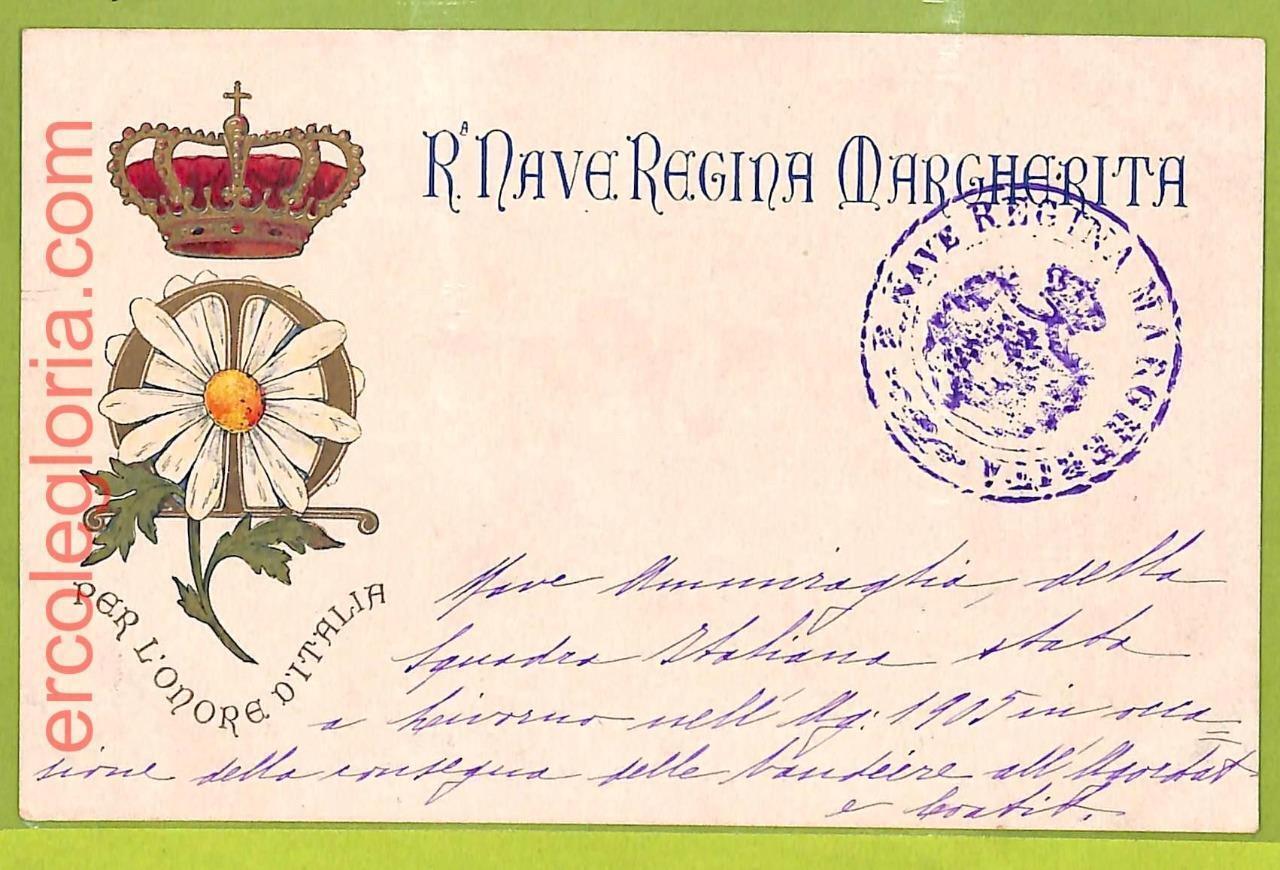 ercolegloria.com
R.ᴬ NAVE REGINA MARGHERITA
R. NAVE REGINA MARGHERITA
PER L'ONORE D'ITALIA
Nave Ammiraglia della
Squadra Italiana stata
a Livorno nell' Ag: 1905 in occa=
sione della consegna delle bandiere all' Agordat
e Coatit.